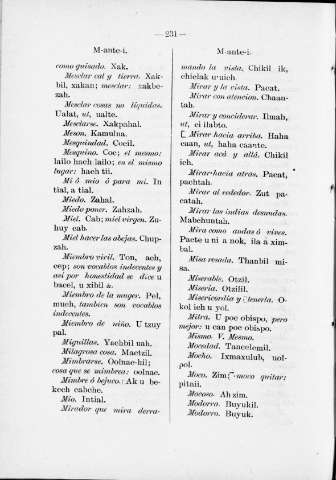 — 231 —
M-ante-i.
como guisado. Xak.
Mesclar cal y tierra. Xak-
bil, xakan; mesclar: zakbe-
zah.
Mesclar cosas no líquidas.
Ualat, ut, ualte.
Mesclarse. Xakpahal.
Meson. Kamulna.
Mesquindad. Cocil.
Mesquino. Coc; el mesmo:
lailo hach lailo; es el mismo
lugar: hach tii.
Mi ó mio ó para mi. In
tial, a tial.
Miedo. Zahal.
Miedo poner. Zahzah.
Miel. Cab; miel virgen. Zu-
huy cab.
Miel hacer las abejas. Chup-
zah.
Miembro viril. Ton, ach,
cep; son vocablos indecentes y
así por honestidad se dice u
bacel, u xibil
Miembro de la muger. Pel,
much, tambien son vocablos
indecentes.
Miembro de niño. U tzuy
pal.
Miguillas. Yachbil uah.
Milagrosa cosa. Mactzil.
Mimbrarse. Oolnac-hil;
cosa que se mimbrea: oolnac.
Mimbre ó bejuco. Ak u be-
kech cabche.
Mio. Intial.
Mirador que mira derra-
M-ante-i.
mando la vista. Chikil ik,
chielak u uich.
Mirar y la vista. Pacat.
Mirar con atencion. Chaan-
tah.
Mirar y concidérar. Ilmah,
ut, ci ilabto.
Mirar hacia arriba. Haha
caan, ut, haha caante.
Mirar acá y allá. Chikil
ich.
Mirar-hacia atras. Pacat,
pachtah.
Mirar al rededor. Zut pa-
catah.
Mirar las indias desnudas.
Matchuntah.
Mira como andas ó vives.
Pacte u ni a nok, ila a xim-
bal.
Misa resada. Thanbil mi-
sa.
Miserable. Otzil.
Miseria. Otzilil.
Misericordia y tenerla. O-
kol ich u yol.
Mitra. U poc obispo, pero
mejor: u can poc obispo.
Mismo. V. Mesmo.
Mocedad. Tancelemil.
Mocho. Ixmaxulub, uol-
pol.
Moco. Zim; moco quitar:
pitzii.
Mocoso. Ah zim.
Modorra. Buyukil.
Modorro. Buyuk.